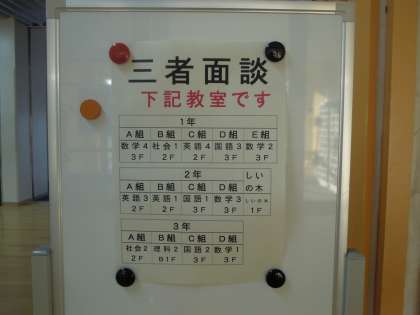 三者面談
下記教室です
1年
A組 B組 C組 D組 E組
数学4 社会1 英語4 国語3 数学2
3F 2F 2F 3F 3F
2年 しい
A組 B組 C組 D組 の木
英語3 英語1 国語1 数学3 しいの木
2F 2F 3F 3F 1F
3年
A組 B組 C組 D組
社会2 理科2 国語2 数学1
2F B1F 3F 3F